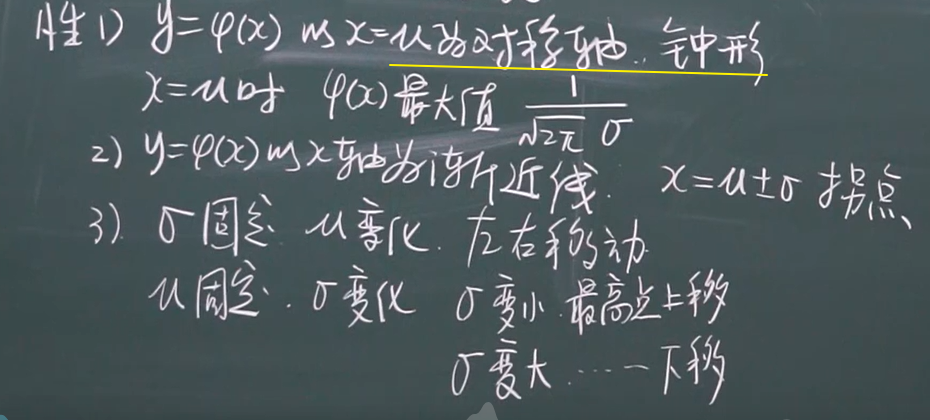 性1) y=φ(x) 以x=μ为对称轴. 钟形
x=μ时 φ(x)最大值 1/(√2π σ)
2) y=φ(x)以x轴为渐近线. x=μ±σ 拐点
3). σ固定 μ变化. 左右移动
μ固定. σ变化 σ变小 最高点上移
σ变大 ……下移